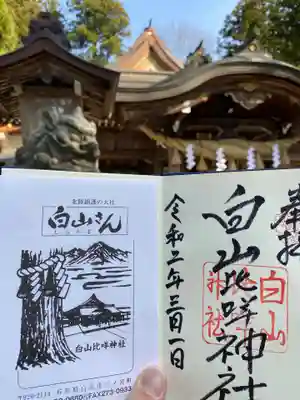 北陸鎮護の大社
白山さん
白山比咩神社
奉拝
白山比咩神社
白山
神社
令和二年三月一日